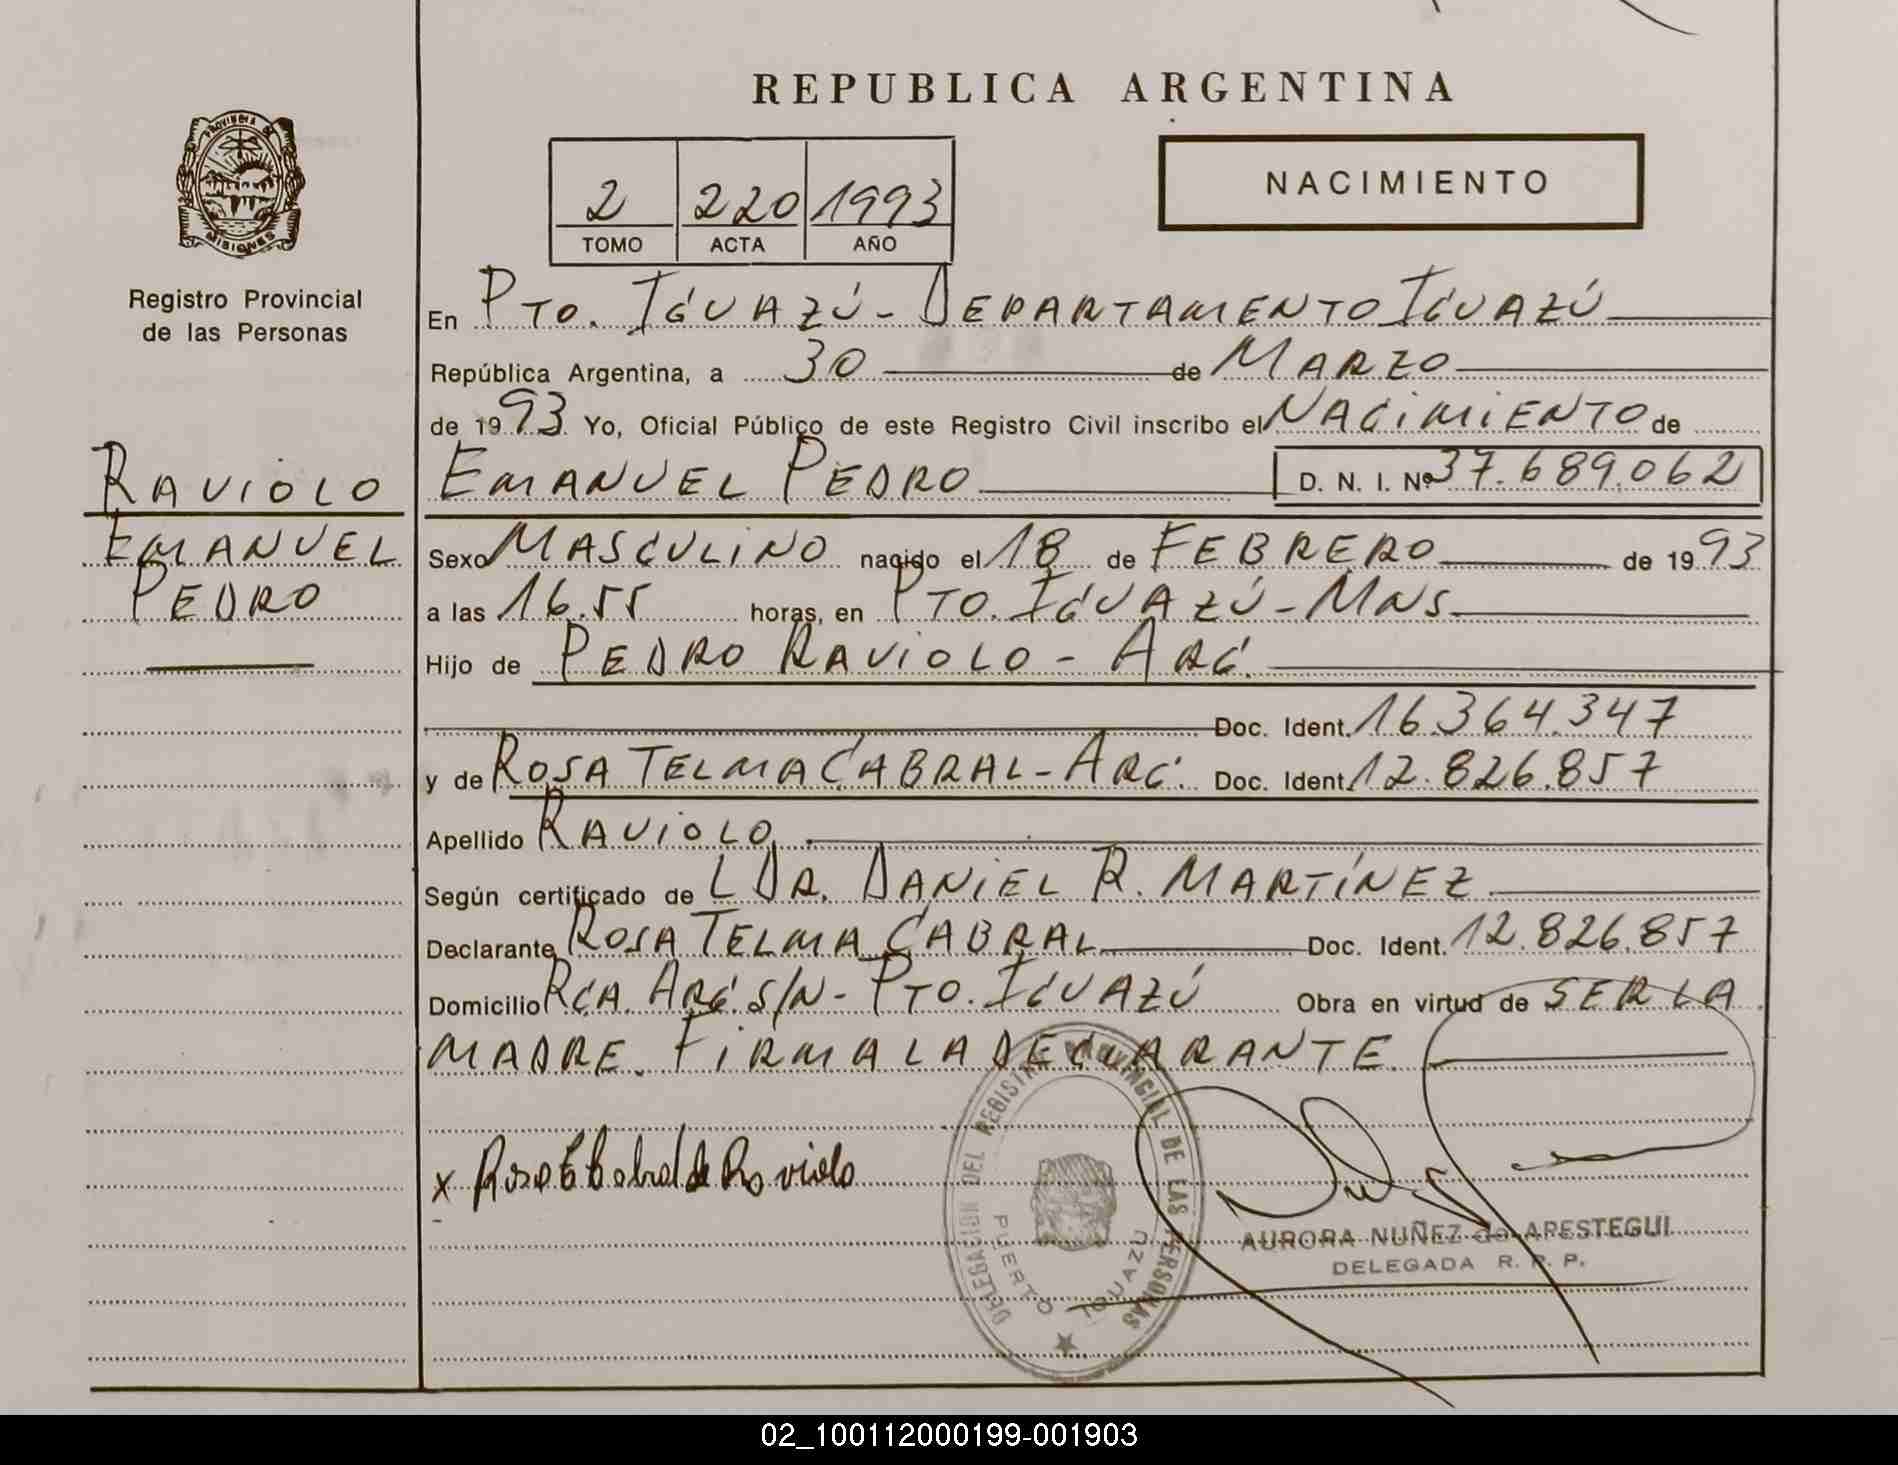 REPUBLICA ARGENTINA
PROVINCIA DE
MISIONES
Registro Provincial
de las Personas
2 220 1993
TOMO ACTA AÑO
NACIMIENTO
En PTO. IGUAZÚ - DEPARTAMENTO IGUAZÚ
República Argentina, a 30 de MARZO
de 1993 Yo, Oficial Público de este Registro Civil inscribo el NACIMIENTO de
EMANUEL PEDRO D. N. I. Nº 37.689.062
RAVIOLO
EMANUEL
PEDRO
Sexo MASCULINO nacido el 18 de FEBRERO de 1993
a las 16.55 horas, en PTO. IGUAZÚ - MNS
Hijo de PEDRO RAVIOLO - ARG.
Doc. Ident. 16.364.347
y de ROSA TELMA CABRAL - ARG. Doc. Ident. 12.826.857
Apellido RAVIOLO
Según certificado de L DR. DANIEL R. MARTÍNEZ
Declarante ROSA TELMA CABRAL Doc. Ident. 12.826.857
Domicilio RCA. ARG. S/N - PTO. IGUAZÚ Obra en virtud de SER LA
MADRE. FIRMA LA DECLARANTE.
x Rosa T Cabral de Raviolo
DELEGACION DEL REGISTRO PROVINCIAL DE LAS PERSONAS
PUERTO IGUAZU
AURORA NUÑEZ de ARESTEGUI
DELEGADA R. P. P.
02_100112000199-001903